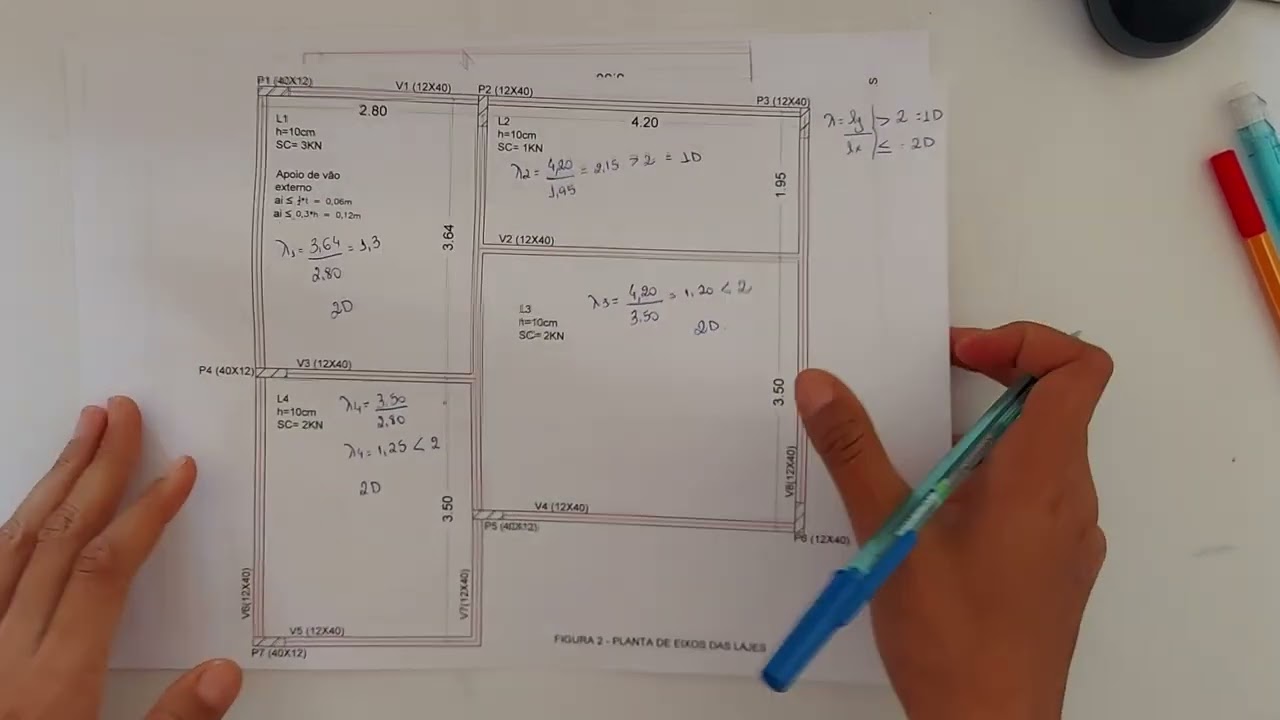 P1 (40X12)
V1 (12X40)
P2 (12X40)
P3 (12X40)
2.80
4.20
L1
h=10cm
SC= 3KN
Apoio de vão
externo
ai ≤ ½*t = 0,06m
ai ≤ 0,3*h = 0,12m
λ1 = 3,64 / 2,80 = 1,3
2D
3.64
L2
h=10cm
SC= 1KN
λ2 = 4,20 / 1,95 = 2,15 > 2 = 1D
1.95
λ = ly / lx | > 2 = 1D
≤ - 2D
S
V2 (12X40)
L3
h=10cm
SC= 2KN
λ3 = 4,20 / 3,50 = 1,20 < 2
2D
3.50
V8(12X40)
V3 (12X40)
P4 (40X12)
L4
h=10cm
SC= 2KN
λ4 = 3,50 / 2,80
λ4 = 1,25 < 2
2D
3.50
V4 (12X40)
P5 (40X12)
P6 (12X40)
V6(12X40)
V7(12X40)
V5 (12X40)
P7 (40X12)
FIGURA 2 - PLANTA DE EIXOS DAS LAJES